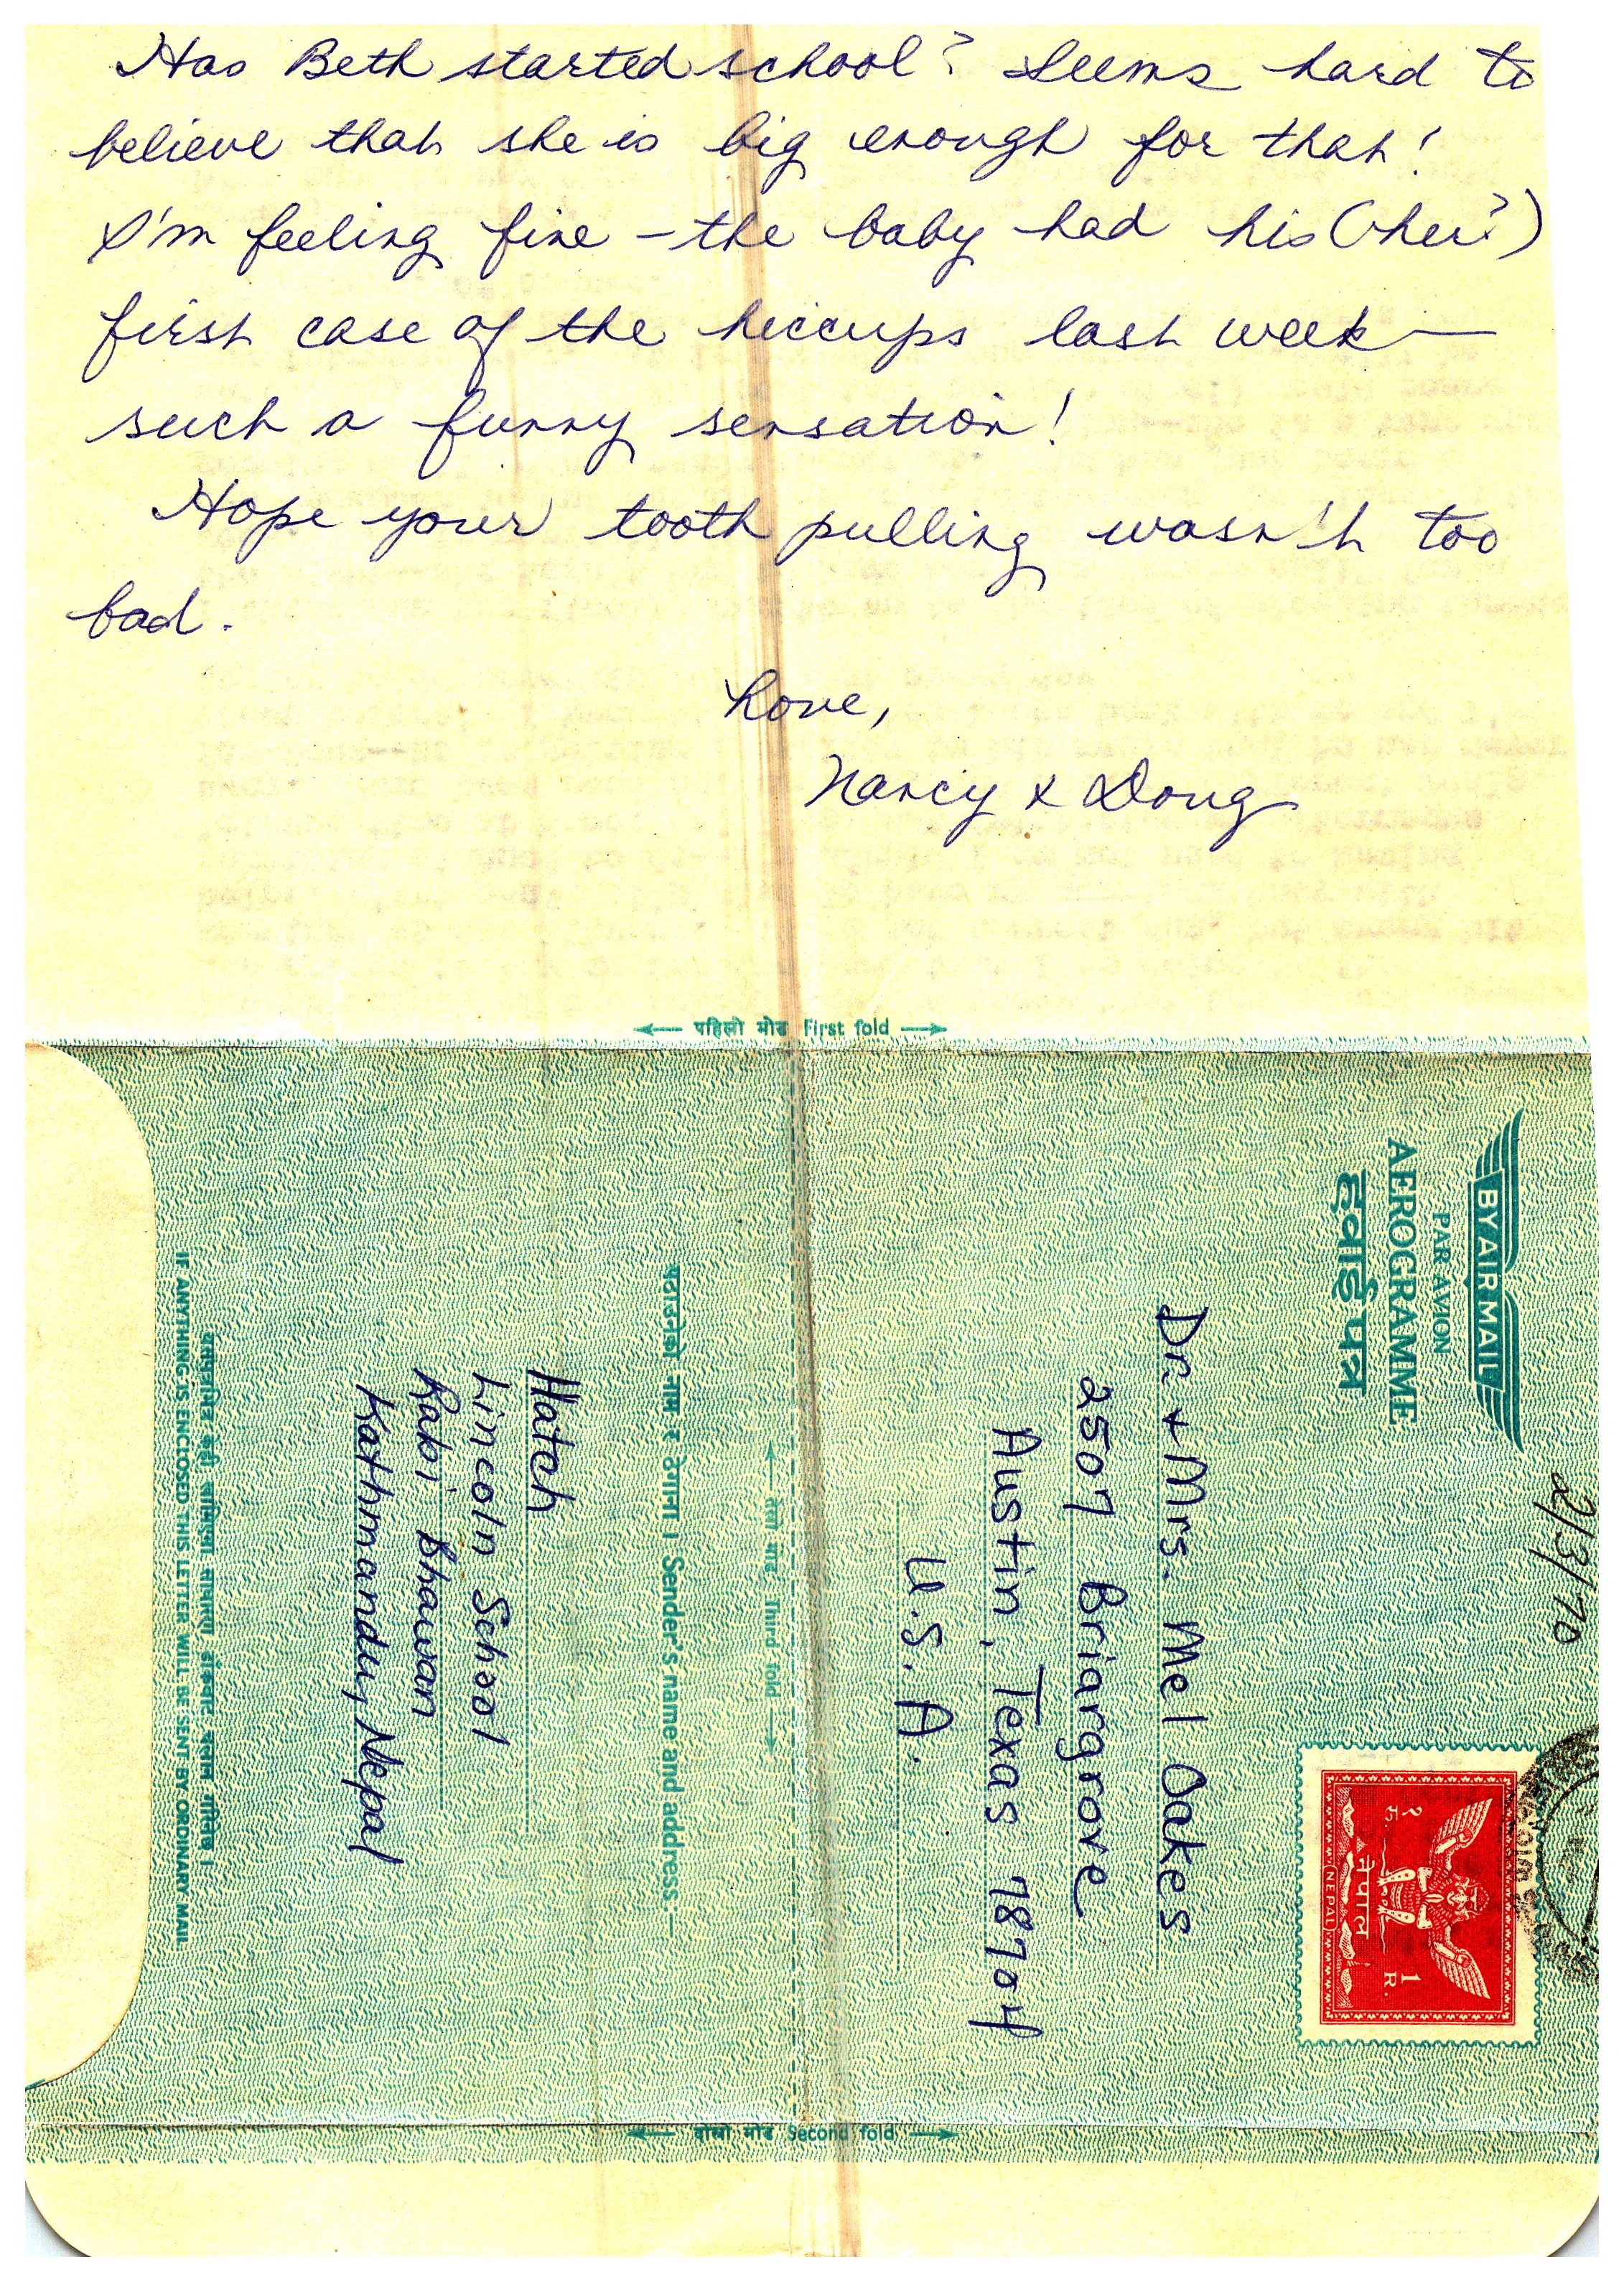 Has Beth started school? Seems hard to
believe that she is big enough for that!
I'm feeling fine - the baby had his (her?)
first case of the hiccups last week —
such a funny sensation!
Hope your tooth pulling wasn't too
bad.
Love,
Nancy & Doug
← पहिलो मोड First fold →
BY AIR MAIL
PAR AVION
AEROGRAMME
हवाई पत्र
2/3/70
Dr. + Mrs. Mel Oakes
2507 Briargrove
Austin, Texas 78704
U.S.A.
१ रु
नेपाल
1 R.
(NEPAL)
← तेस्रो मोड Third fold →
पठाउनेको नाम र ठेगाना । Sender's name and address:—
Hatch
Lincoln School
Rabi Bhawan
Kathmandu, Nepal
IF ANYTHING IS ENCLOSED THIS LETTER WILL BE SENT BY ORDINARY MAIL.
← दोस्रो मोड Second fold →